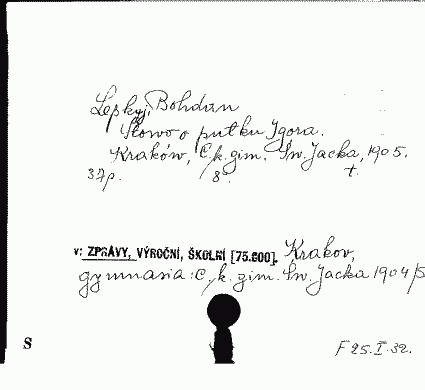 Lepkyj, Bohdan
Słowo o pułku Igora.
Kraków, C.k. gim. Św. Jacka, 1905.
37p. 8°. t.
v: ZPRÁVY, VÝROČNÍ, ŠKOLNÍ [75.600]. Krakov,
gymnasia: C.k. gim. Św. Jacka 1904/5
S
F 25.I.32.